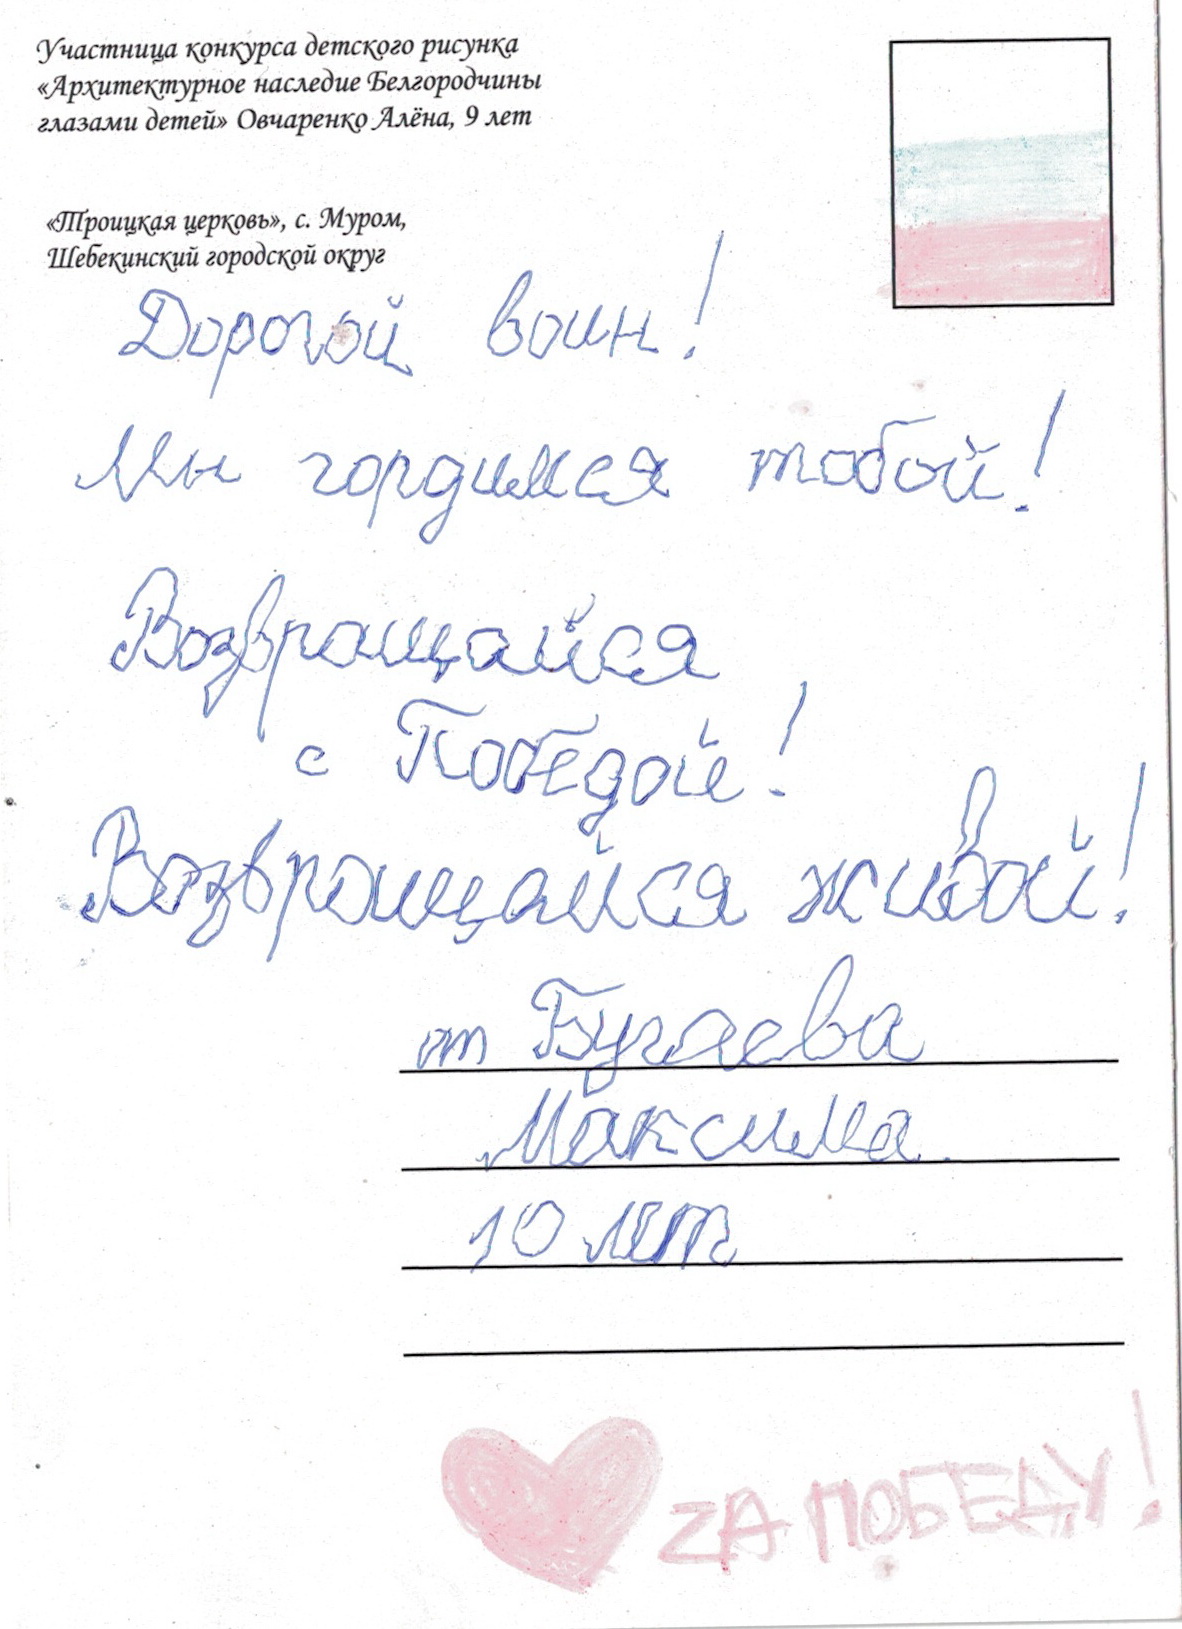 Участница конкурса детского рисунка
«Архитектурное наследие Белгородчины
глазами детей» Овчаренко Алёна, 9 лет
«Троицкая церковь», с. Муром,
Шебекинский городской округ
Дорогой воин!
Мы гордимся тобой!
Возвращайся
с Победой!
Возвращайся живой!
от Бугаева
Максима.
10 лет
ZА ПОБЕДУ!